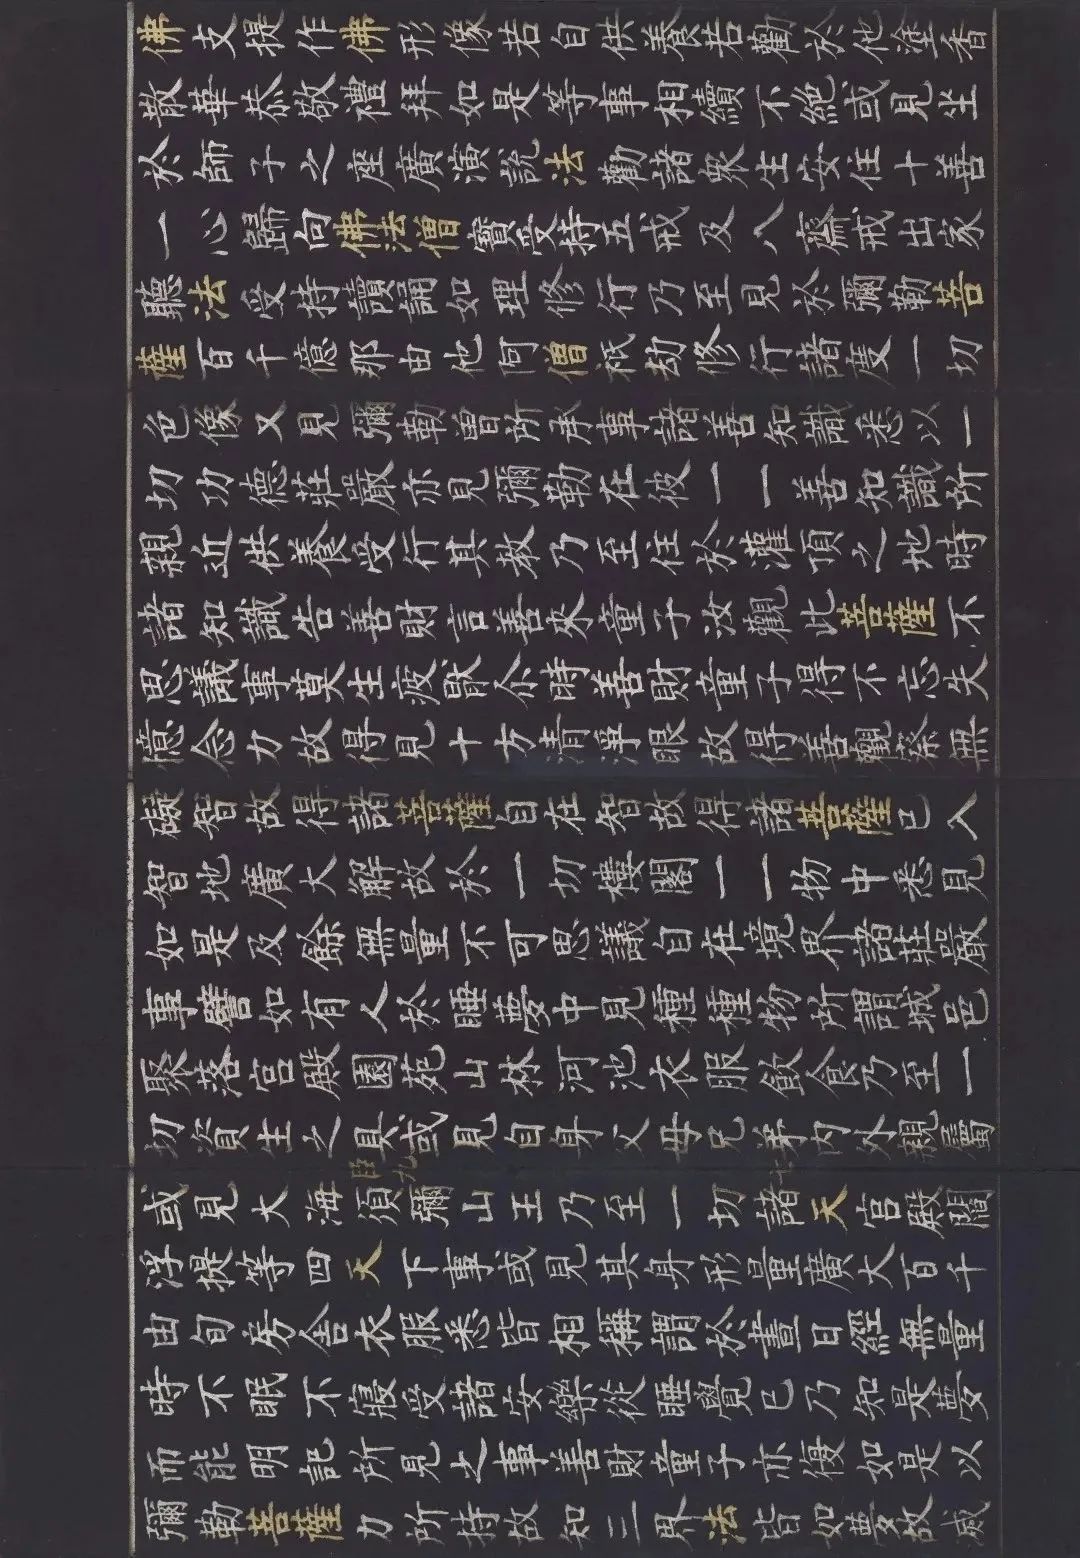 佛支提作佛形像若自供養若勸於他塗香
散華恭敬禮拜如是等事相續不絕或見坐
於師子之座廣演說法勸諸眾生安住十善
一心歸向佛法僧寶受持五戒及八齋戒出家
聽法受持讀誦如理修行乃至見於彌勒菩
薩百千億那由他阿僧祇劫修行諸度一切
色像又見彌勒曾所承事諸善知識悉以一
切功德莊嚴亦見彌勒在彼一一善知識所
親近供養受行其教乃至住於灌頂之地時
諸知識告善財言善來童子汝觀此菩薩不
思議事莫生疲厭尒時善財童子得不忘失
憶念力故得見十方清淨眼故得善觀察無
礙智故得諸菩薩自在智故得諸菩薩已入
智地廣大解故於一切樓閣一一物中悉見
如是及餘無量不可思議自在境界諸莊嚴
事譬如有人於睡夢中見種種物所謂城邑
聚落宮殿園苑山林河池衣服飲食乃至一
切資生之具或見自身父母兄弟內外親屬
或見大海須彌山王乃至一切諸天宮殿閻
浮提等四天下事或見其身形量廣大百千
由旬房舍衣服悉皆相稱謂於晝日經無量
時不眠不寢受諸安樂從睡覺已乃知是夢
而能明記所見之事善財童子亦復如是以
彌勒菩薩力所持故知三界法皆如夢故滅